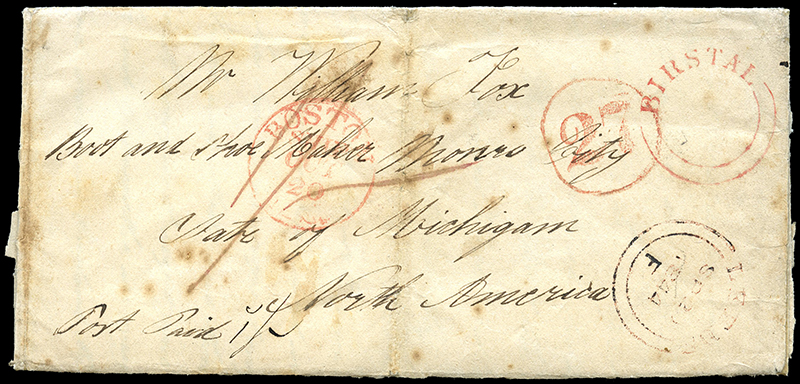 Mr William Fox
Boot and Shoe Maker Monro City
State of Michigam
North America
Post Paid 1/
BOSTON
27
BIRSTAL
1844
F